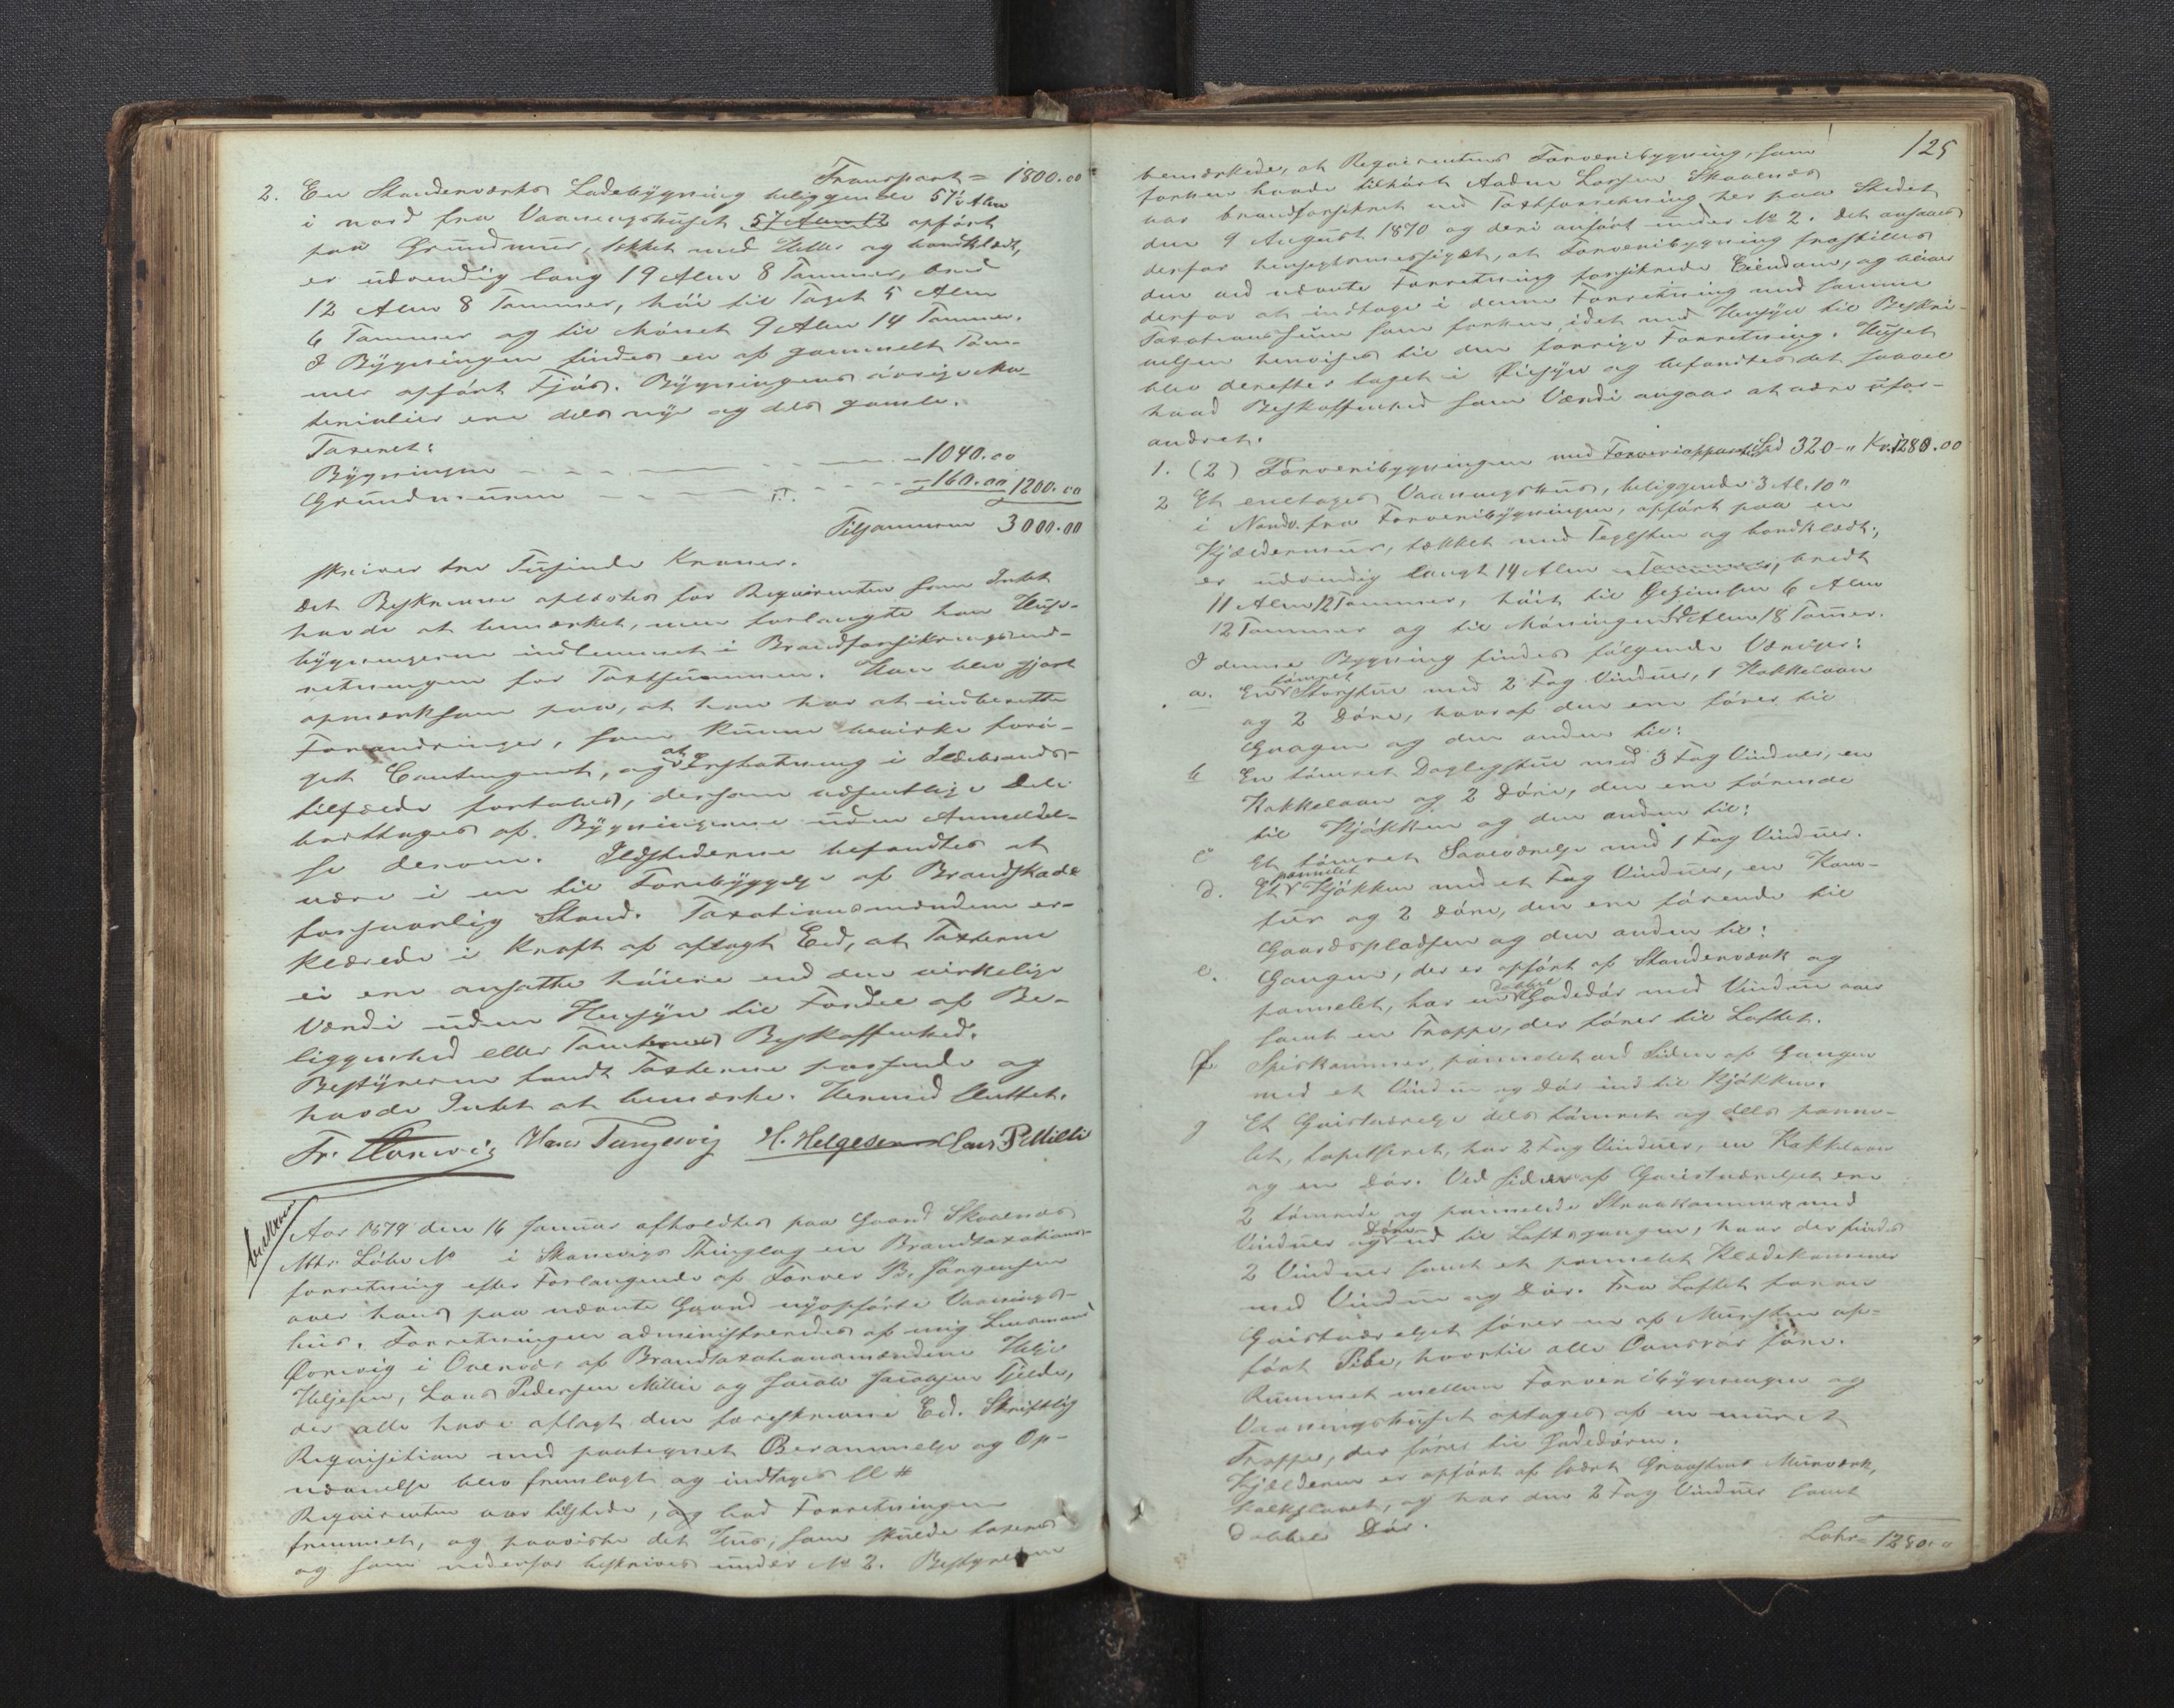 Transport = 1800.00
2. En Standerværks Ladebygning beliggende 57½ Alen
i nord fra Vaaningshuset 57 Alen 12 opført
paa Grundmuur, tekket med Heller og bordklædt,
er udvendig lang 19 Alen 8 Tommer, bred
12 Alen 8 Tommer, høi til Taget 5 Alen
6 Tommer og til Mønet 9 Alen 14 Tommer.
I Bygningen findes en af gammelt Töm-
mer opført Fjøs. Bygningens øvrige Ma-
terialier ere dels nye og dels gamle.
Taxeret:
Bygningen - - - - 1040.00
Grundmuren - - - - 160.00 1200.00
Tilsammen 3000.00
skriver tre Tusinde Kroner.
Det Beskrevne oplæstes for Requirenten som Intet
havde at bemærket, men forlangte han Huus-
bygningerne indlemmet i Brandforsikringsind-
retningen for Taxtsummen. Han blev gjort
opmærksom paa, at han har at indberette
Forandringer, som kunne bevirke forø-
get Contingent, og at Erstatning i Ildebrands-
tilfælde fortabes, dersom væsentlige Dele
borttages af Bygningerne uden Anmeldel-
se derom. Ildstederne befandtes at
være i en til Forebyggelse af Brandskade
forsvarlig Stand. Taxationsmændene er-
klærede i Kraft af aflagt Eed, at Taxterne
ei ere ansatte høiere end den virkelige
Værdi uden Hensyn til Fordel af Be-
liggenhed eller Tomternes Beskaffenhed.
Bestyreren fandt Taxterne passende og
havde Intet at bemærke. Hermed sluttet.
Fr. Hans Tungesvig H. Helgesen Lars P Millie
Aar 1879 den 16 Januar afholdtes paa Gaard Skaalnes
Mtr. Løbe No i Skonevigs Thinglag en Brandtaxations-
forretning efter Forlangende af Farver B. Jørgensen
over hans paa nævnte Gaard nyopførte Vaanings-
huus. Forretningen administreredes af mig Lensmand
i Overvær af Brandtaxationsmændene Helje
Heljesen, Lars Pedersen Millie og Jacob Jacobsen Tjelde,
der alle have aflagt den foreskrevne Eed. Skriftlig
Requisition med paategnet Berammelse og Op-
nævnelse blev fremlagt og indtages sl #
Requirenten var tilstede, og bad Forretningen
fremmet, og paaviste det Huus, som skulde taxeres
og som nedenfor beskrives under No 2. Bestyreren
125
bemærkede, at Requirentens Farveribygning, som
forhen havde tilhørt Aadne Larsen Skaalnes
var brandforsikret ved Taxtforretning her paa Stedet
den 9 August 1870 og deri anført under No 2. Det ansaaes
derfor hensigtsmessigst, at Farveribygning fraskilles
den ved nævnte Forretning forsikrede Eiendom, og bliver
derfor at indtage i denne Forretning med samme
Taxationssum som forhen, idet med Hensyn til Beskri-
velsen henvises til den forrige Forretning. Huset
blev derefter taget i Øiesyn og befandtes det saavel
hvad Beskaffenhed som Værdi angaar at være ufor-
andret.
1. (2) Farveribygningen med Farveriapparat Spd 320 - " Kr. 1280.00
2 Et enetages Vaaningshus, beliggende 3 Al. 10"
i Nordv. fra Farveribygningen, opført paa en
Kjeldermuur, tækket med Teglsten og bordklædt,
er udvendig langt 14 Alen Tommer, bredt
11 Alen 12 Tommer, høit til Gesimsen 6 Alen
12 Tommer og til Mønningen Alen 18 Tommer.
I denne Bygning findes følgende Værelser:
tømret
a. En Storstue med 2 Fag Vinduer, 1 Kakkelovn
og 2 Døre, hvoraf den ene fører til
Gangen og den anden til:
b En tømret Daglegstue med 3 Fag Vinduer, en
Kakkelovn og 2 Døre, den ene førende
til Kjøkken og den anden til:
c Et tømret Soveværelse med 1 Fag Vinduer.
pannelet
d. Et Kjøkken med et Fag Vinduer, en Kom-
fur og 2 Døre, den ene førende til
Gaardspladsen og den anden til:
e. Gangen, der er opført af Standerværk og
dobbel
pannelet, har en Gadedør med Vindue over
samt en Trappe, der fører til Loftet.
f. Spiskammer, pannelet ved Siden af Gangen
med et Vindue og Dør ind til Kjøkken.
g Et Gaistværelse dels tømret og dels panne-
let, tapetseret, har 2 Fag Vinduer, en Kakkelovn
og en Dør. Ved siden af Gaistværelset ere
2 tømrede og pannelede Straakammer med
Døre
Vinduer og ud til Loftsgangen, hvor der findes
2 Vinduer samt et pannelet Klædekammer
med Vindue og Dør. Fra Loftet foran
Gaistværelset fører en af Mursten op-
ført Pibe, hvortil alle Ovnsrør føre.
Rummet mellem Farveribygningen og
Vaaningshuset optages af en muret
Trappe, der fører til Gadedøren.
Kjelderen er opført af svært Graastens Murværk,
kalkslaaet, og har den 2 Fag Vinduer samt
dobbel Dør.
Latus = 1280.00